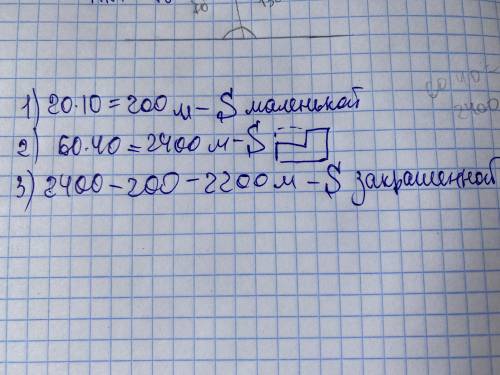 1) 20·10=200 м - S маленькой
2) 60·40=2400 м - S
3) 2400-200-2200 м - S закрашенной
2400